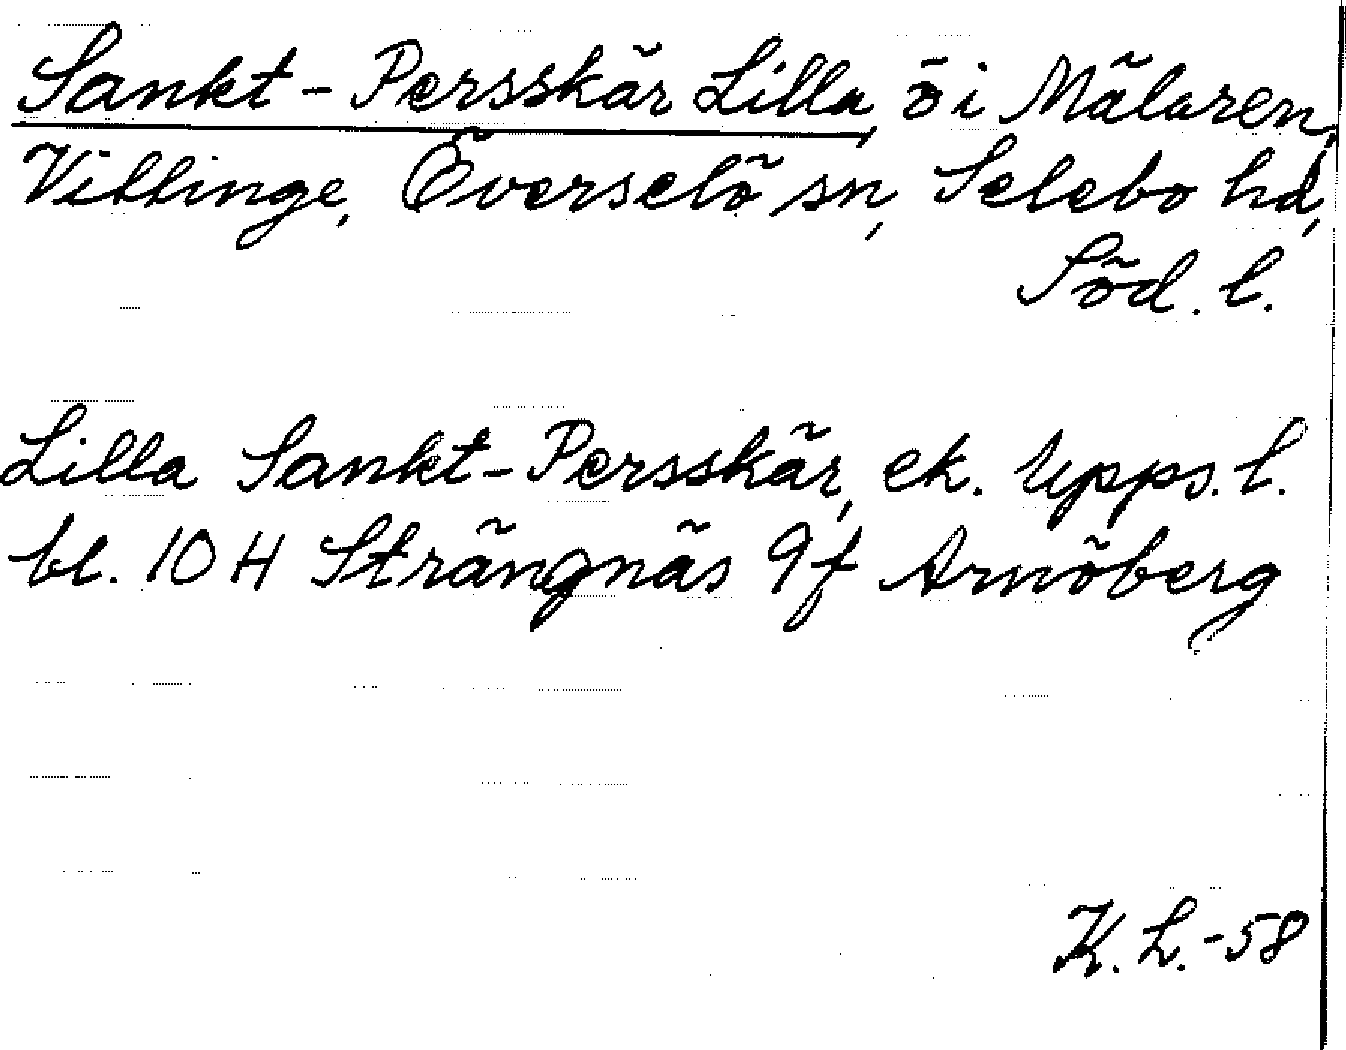 Sankt-Persskär Lilla, ö i Mälaren,
Villinge, Överselö sn, Selebo hd,
Söd. l.
Lilla Sankt-Persskär, ek. Upps. l.
bl. 10 H Strängnäs 9f Arnöberg
K. L. -58